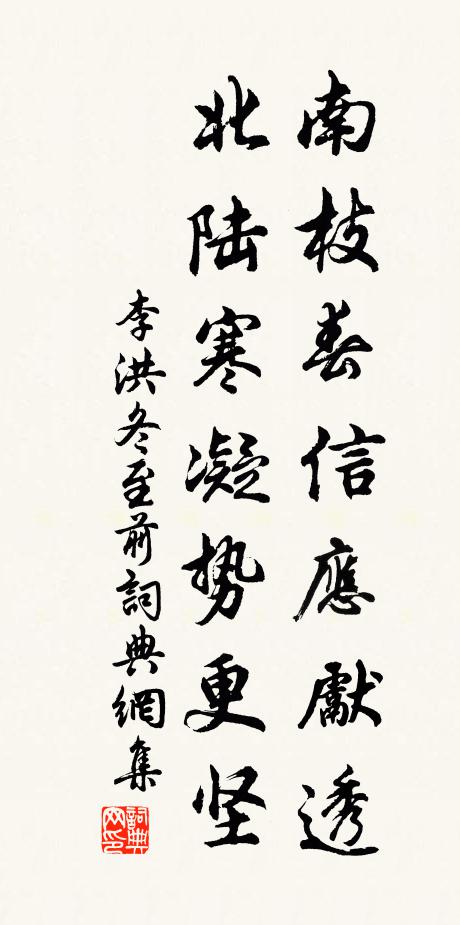 南枝春信應獻透
北陆寒凝势更坚
李洪冬至前詞典網集
詞典网印